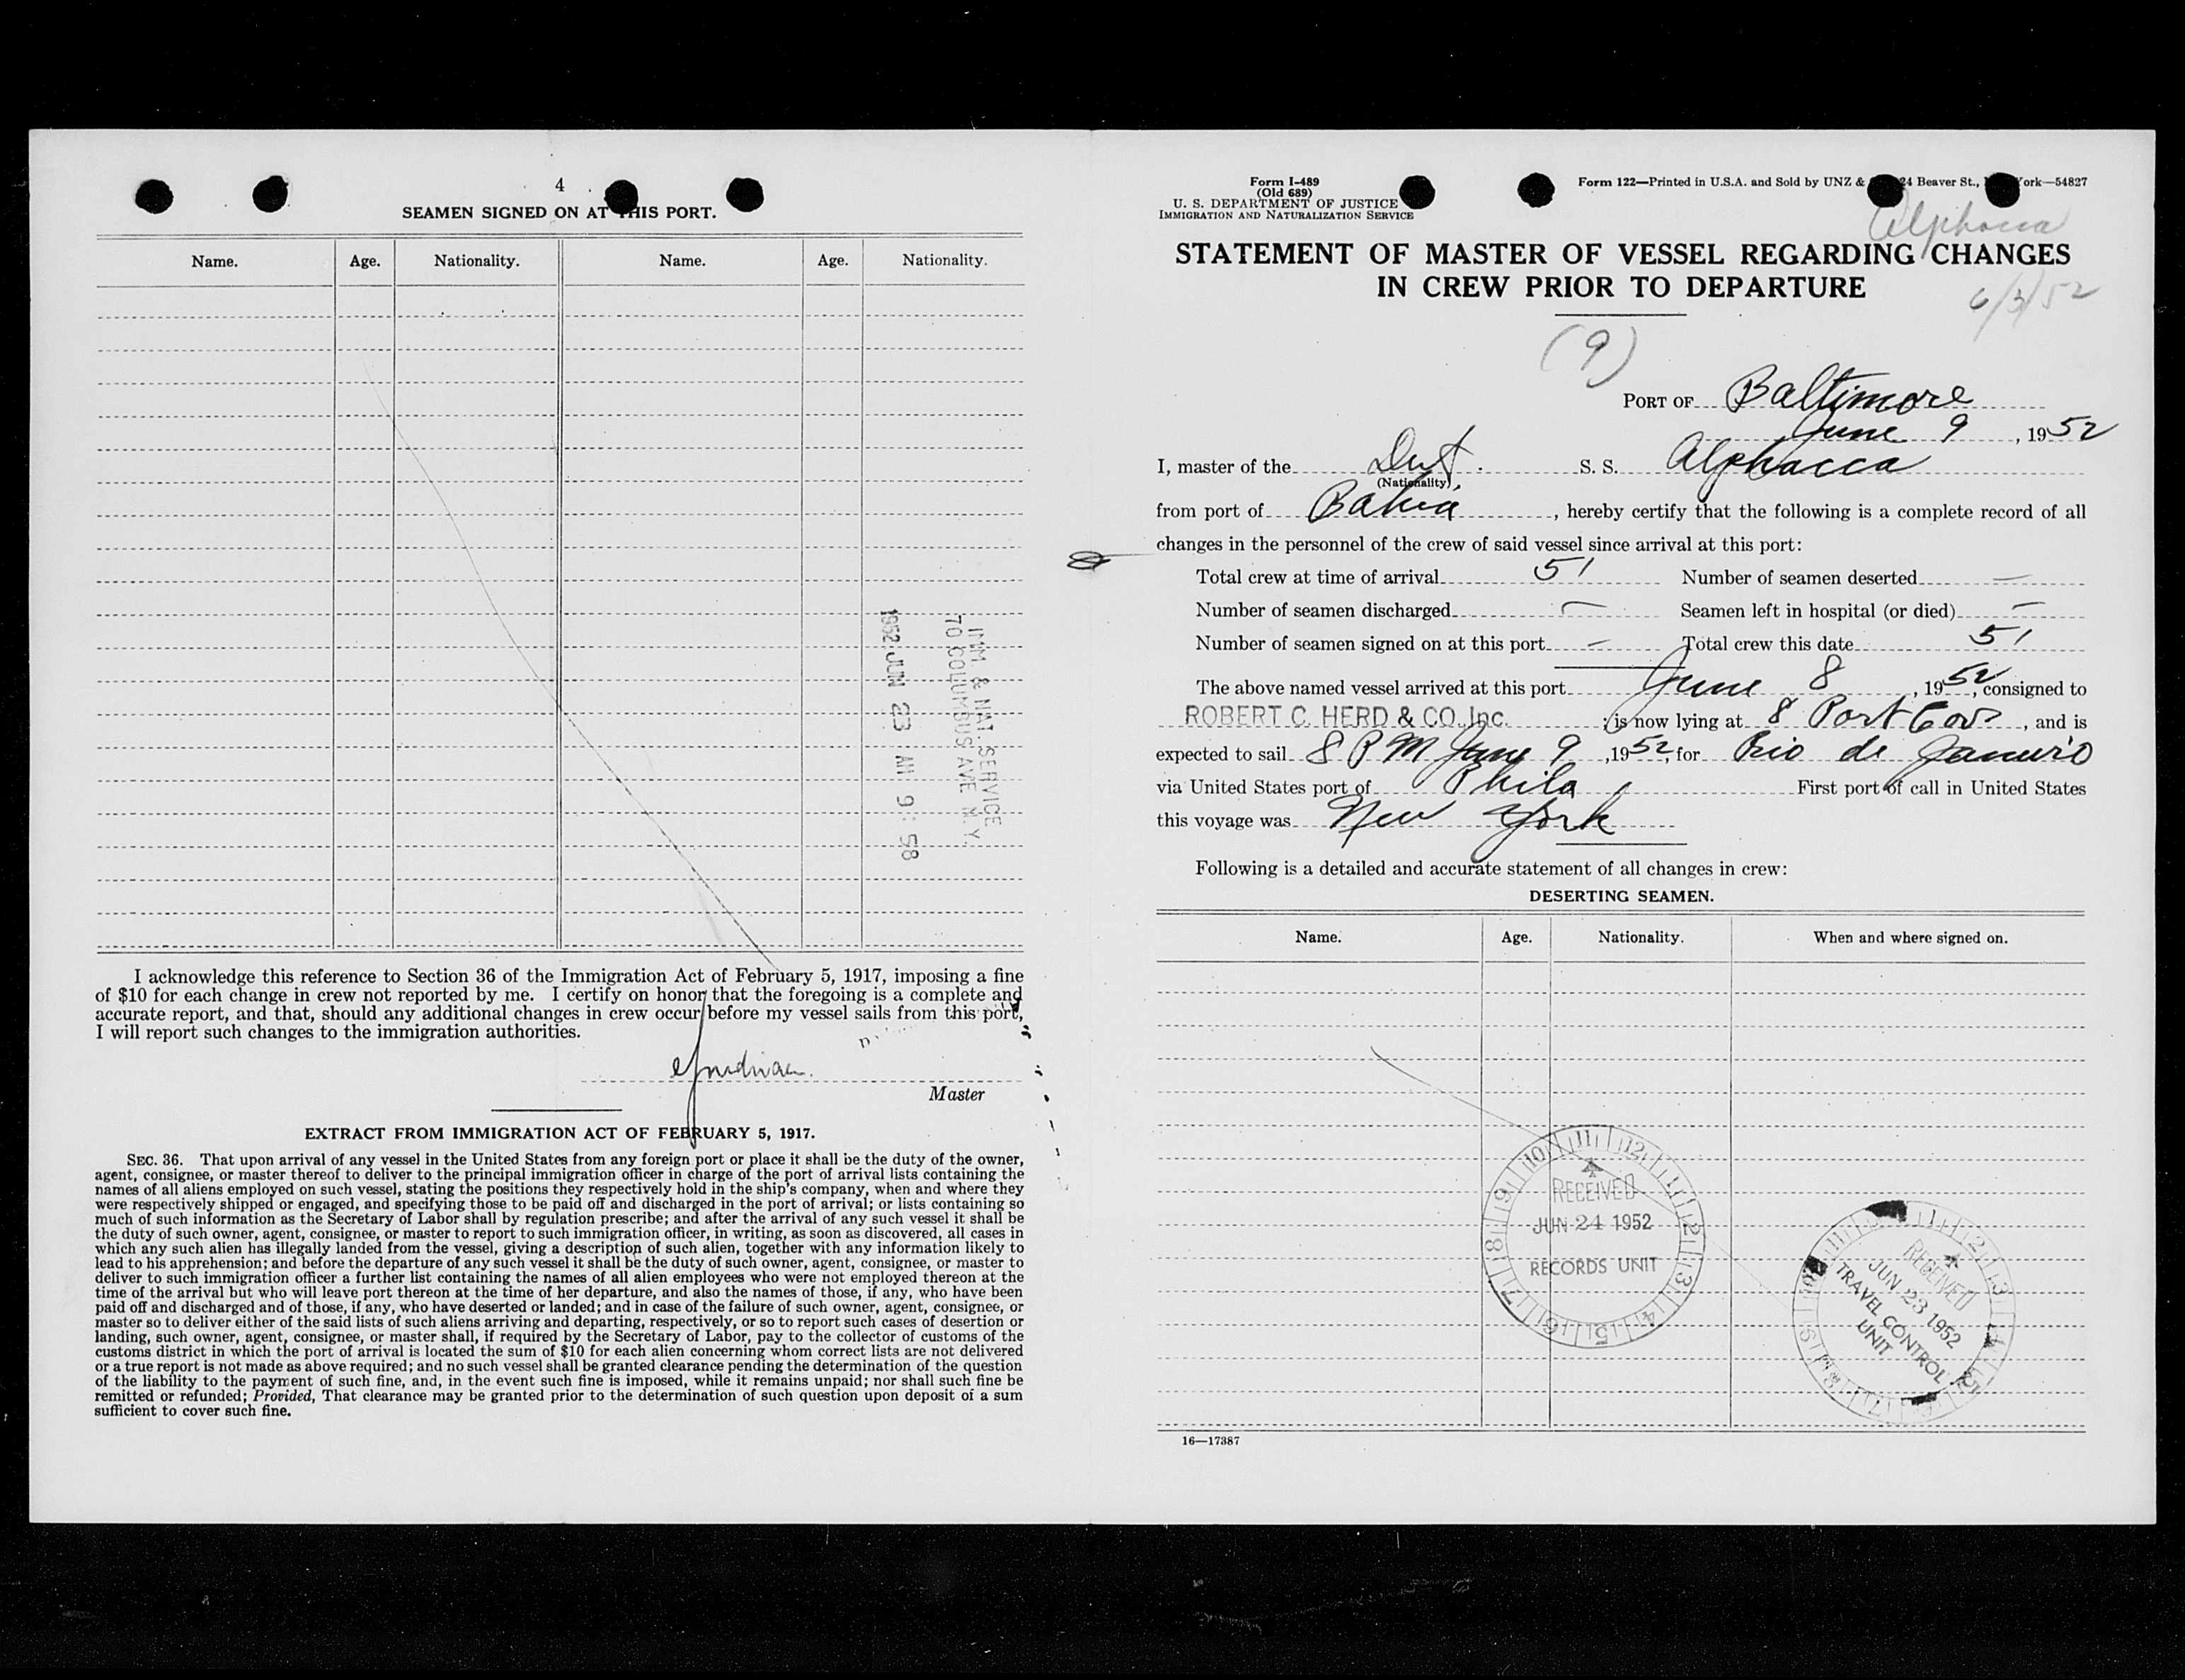 4
SEAMEN SIGNED ON AT THIS PORT.
Name. Age. Nationality. Name. Age. Nationality.
IMM. & NAT. SERVICE
70 COLUMBUS AVE N.Y.
1952 JUN 23 AM 9:58
I acknowledge this reference to Section 36 of the Immigration Act of February 5, 1917, imposing a fine
of $10 for each change in crew not reported by me. I certify on honor that the foregoing is a complete and
accurate report, and that, should any additional changes in crew occur before my vessel sails from this port,
I will report such changes to the immigration authorities.
Master
EXTRACT FROM IMMIGRATION ACT OF FEBRUARY 5, 1917.
SEC. 36. That upon arrival of any vessel in the United States from any foreign port or place it shall be the duty of the owner,
agent, consignee, or master thereof to deliver to the principal immigration officer in charge of the port of arrival lists containing the
names of all aliens employed on such vessel, stating the positions they respectively hold in the ship's company, when and where they
were respectively shipped or engaged, and specifying those to be paid off and discharged in the port of arrival; or lists containing so
much of such information as the Secretary of Labor shall by regulation prescribe; and after the arrival of any such vessel it shall be
the duty of such owner, agent, consignee, or master to report to such immigration officer, in writing, as soon as discovered, all cases in
which any such alien has illegally landed from the vessel, giving a description of such alien, together with any information likely to
lead to his apprehension; and before the departure of any such vessel it shall be the duty of such owner, agent, consignee, or master to
deliver to such immigration officer a further list containing the names of all alien employees who were not employed thereon at the
time of the arrival but who will leave port thereon at the time of her departure, and also the names of those, if any, who have been
paid off and discharged and of those, if any, who have deserted or landed; and in case of the failure of such owner, agent, consignee, or
master so to deliver either of the said lists of such aliens arriving and departing, respectively, or so to report such cases of desertion or
landing, such owner, agent, consignee, or master shall, if required by the Secretary of Labor, pay to the collector of customs of the
customs district in which the port of arrival is located the sum of $10 for each alien concerning whom correct lists are not delivered
or a true report is not made as above required; and no such vessel shall be granted clearance pending the determination of the question
of the liability to the payment of such fine, and, in the event such fine is imposed, while it remains unpaid; nor shall such fine be
remitted or refunded; Provided, That clearance may be granted prior to the determination of such question upon deposit of a sum
sufficient to cover such fine.
Form I-489
(Old 689)
U. S. DEPARTMENT OF JUSTICE
IMMIGRATION AND NATURALIZATION SERVICE
Form 122—Printed in U.S.A. and Sold by UNZ & 24 Beaver St., York—54827
Alphacca
STATEMENT OF MASTER OF VESSEL REGARDING CHANGES
IN CREW PRIOR TO DEPARTURE
6/3/52
(9)
PORT OF Baltimore
June 9, 1952
I, master of the Dut. S. S. Alphacca
(Nationality)
from port of Bahia, hereby certify that the following is a complete record of all
changes in the personnel of the crew of said vessel since arrival at this port:
Total crew at time of arrival 51 Number of seamen deserted —
Number of seamen discharged — Seamen left in hospital (or died) —
Number of seamen signed on at this port — Total crew this date 51
The above named vessel arrived at this port June 8, 1952, consigned to
ROBERT C. HERD & CO., Inc.; is now lying at 8 Port Cov, and is
expected to sail 8 PM June 9, 1952, for Rio de Janeiro
via United States port of Phila First port of call in United States
this voyage was New York
Following is a detailed and accurate statement of all changes in crew:
DESERTING SEAMEN.
Name. Age. Nationality. When and where signed on.
10 11 12 1 2 3 4 5 6 7 8 9
RECEIVED
JUN 24 1952
RECORDS UNIT
RECEIVED
JUN 23 1952
TRAVEL CONTROL
UNIT
16—17387